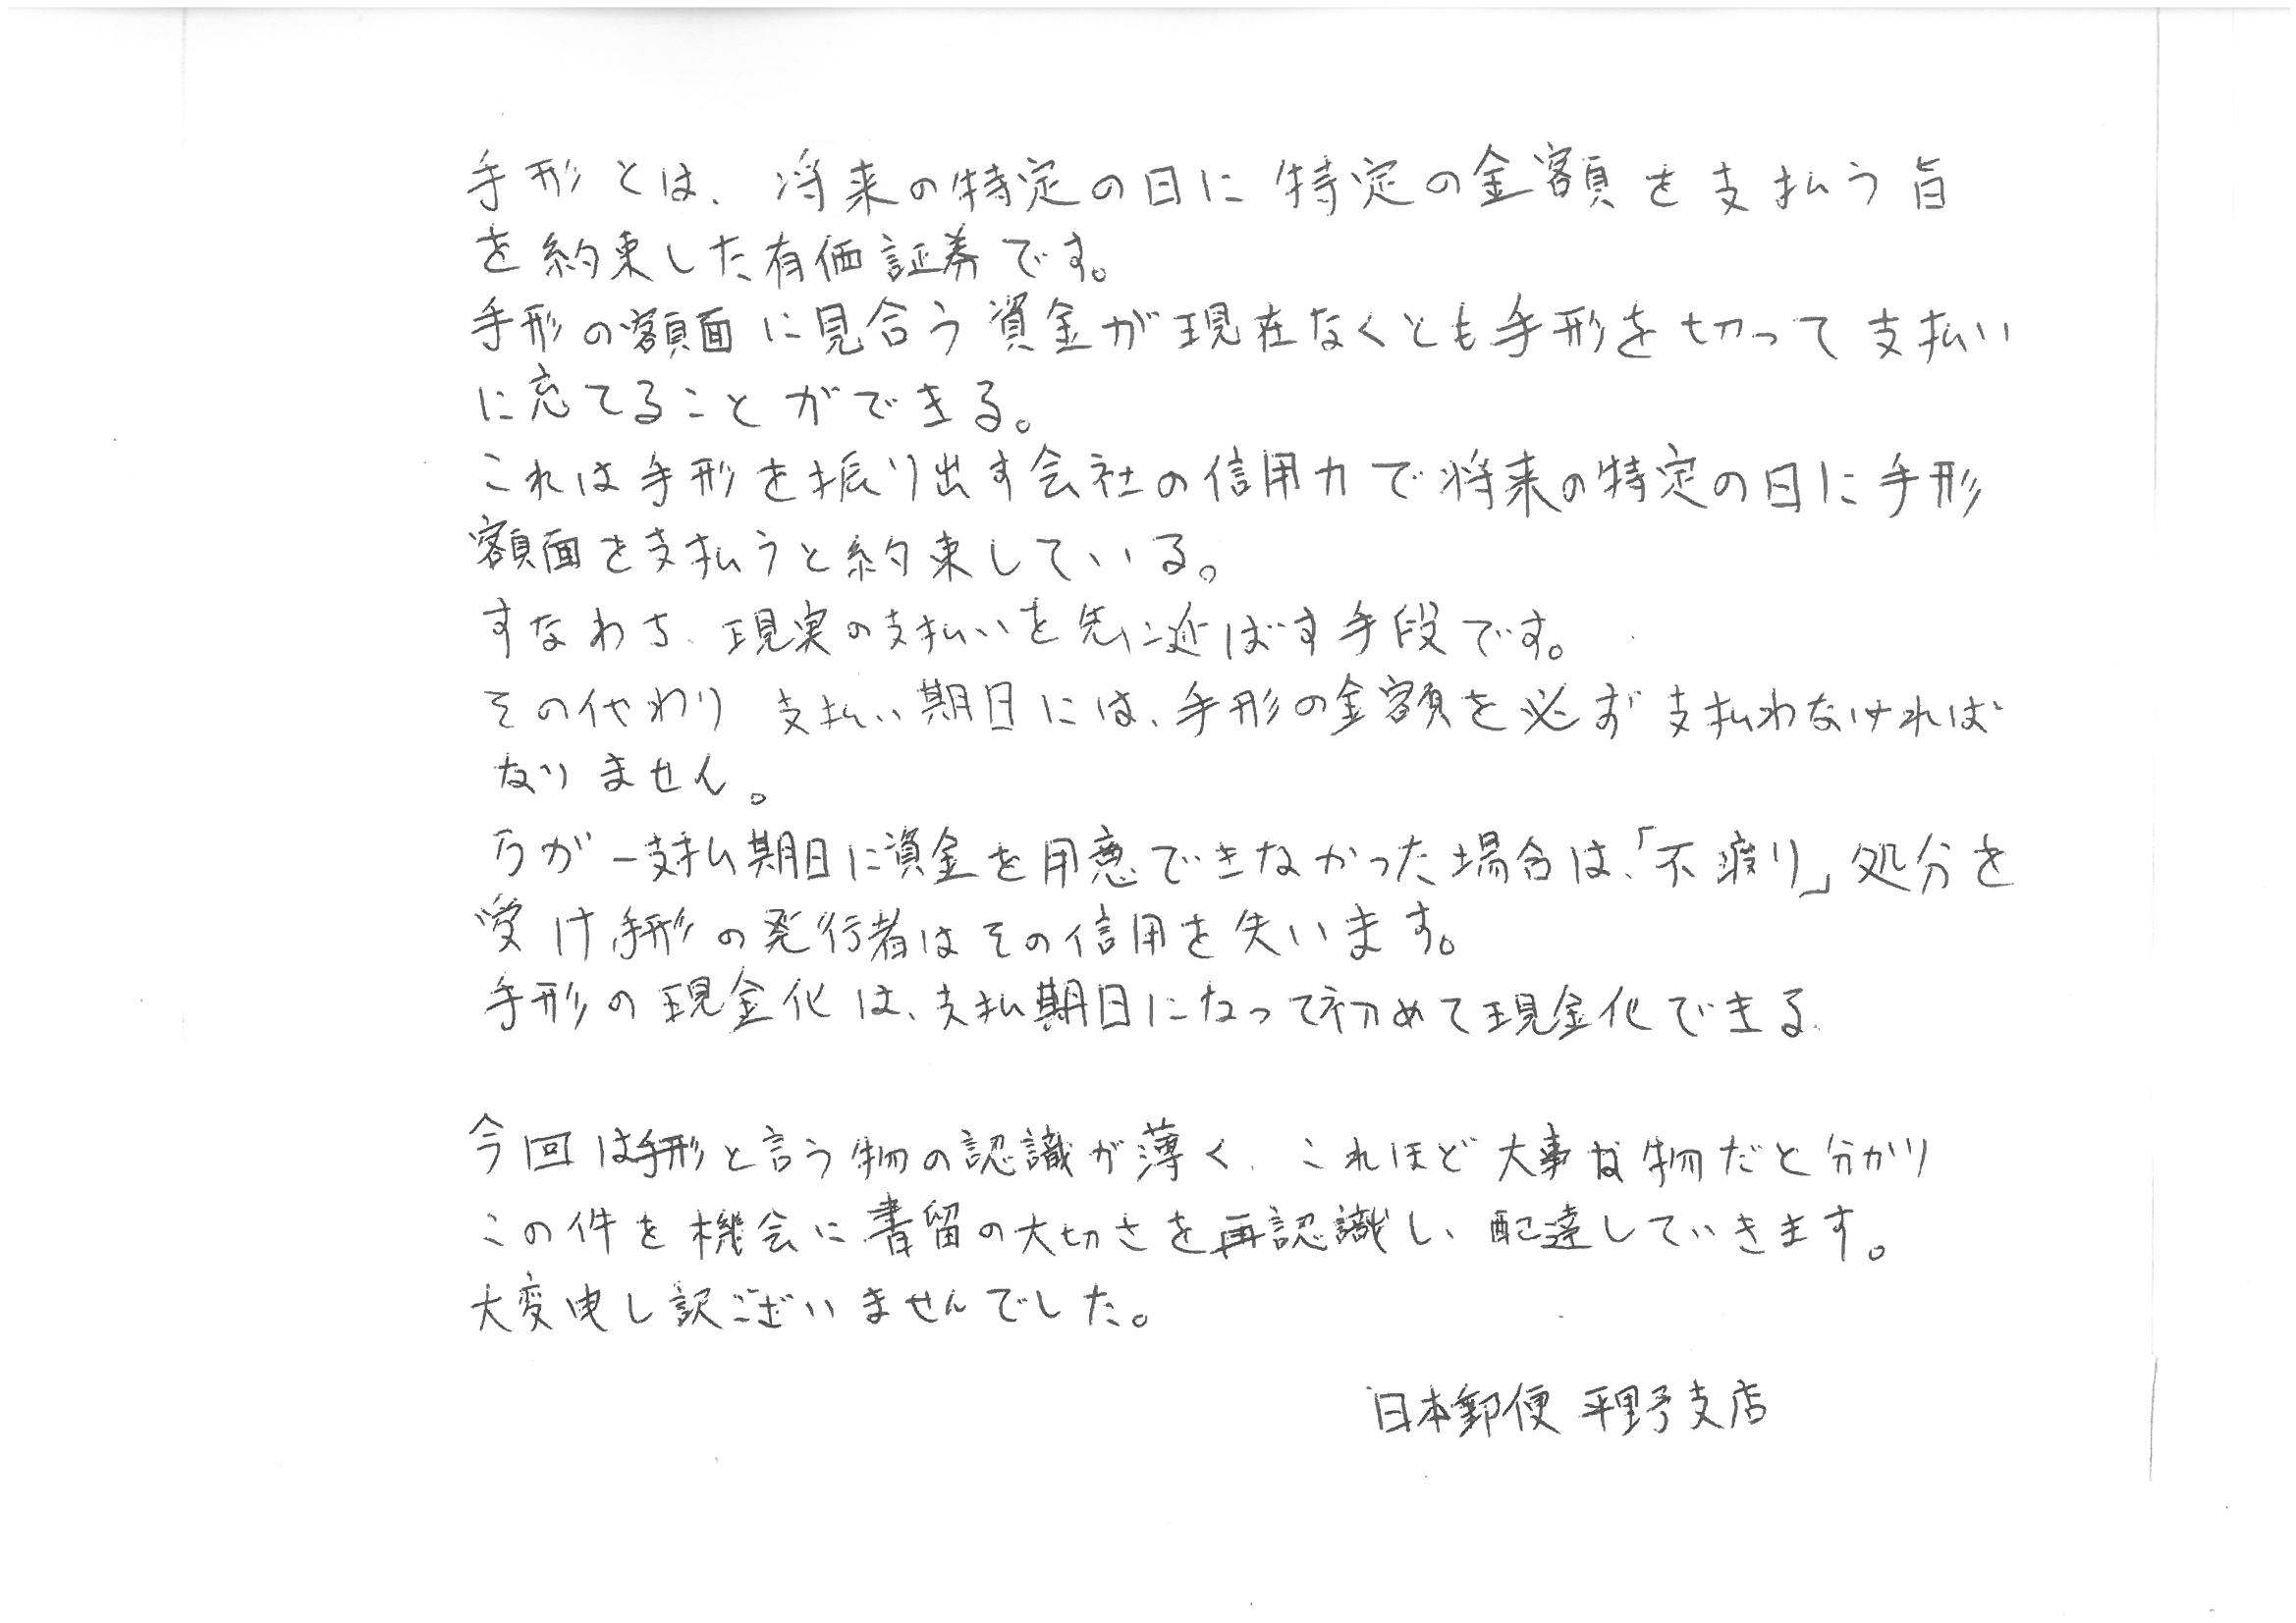 手形とは、将来の特定の日に特定の金額を支払う旨
を約束した有価証券です。
手形の額面に見合う資金が現在なくとも手形を切って支払い
に充てることができる。
これは手形を振り出す会社の信用力で将来の特定の日に手形
額面を支払うと約束している。
すなわち、現実の支払いを先に延ばす手段です。
その代わり 支払い期日には、手形の金額を必ず支払わなければ
なりません。
万が一支払期日に資金を用意できなかった場合は、「不渡り」処分を
受け手形の発行者はその信用を失います。
手形の現金化は、支払期日になって初めて現金化できる
今回は手形と言う物の認識が薄く、これほど大事な物だと分かり
この件を機会に書留の大切さを再認識し、配達していきます。
大変申し訳ございませんでした。
日本郵便 平野支店